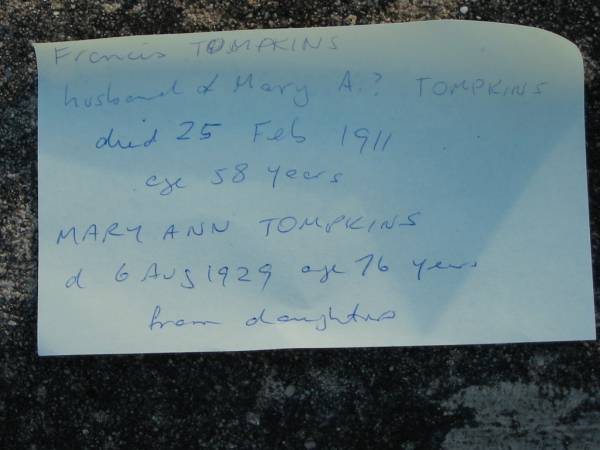 Francis TOMPKINS
husband of Mary A.? TOMPKINS
died 25 Feb 1911
age 58 years
MARY ANN TOMPKINS
d 6 Aug 1929 age 76 years
from daughters